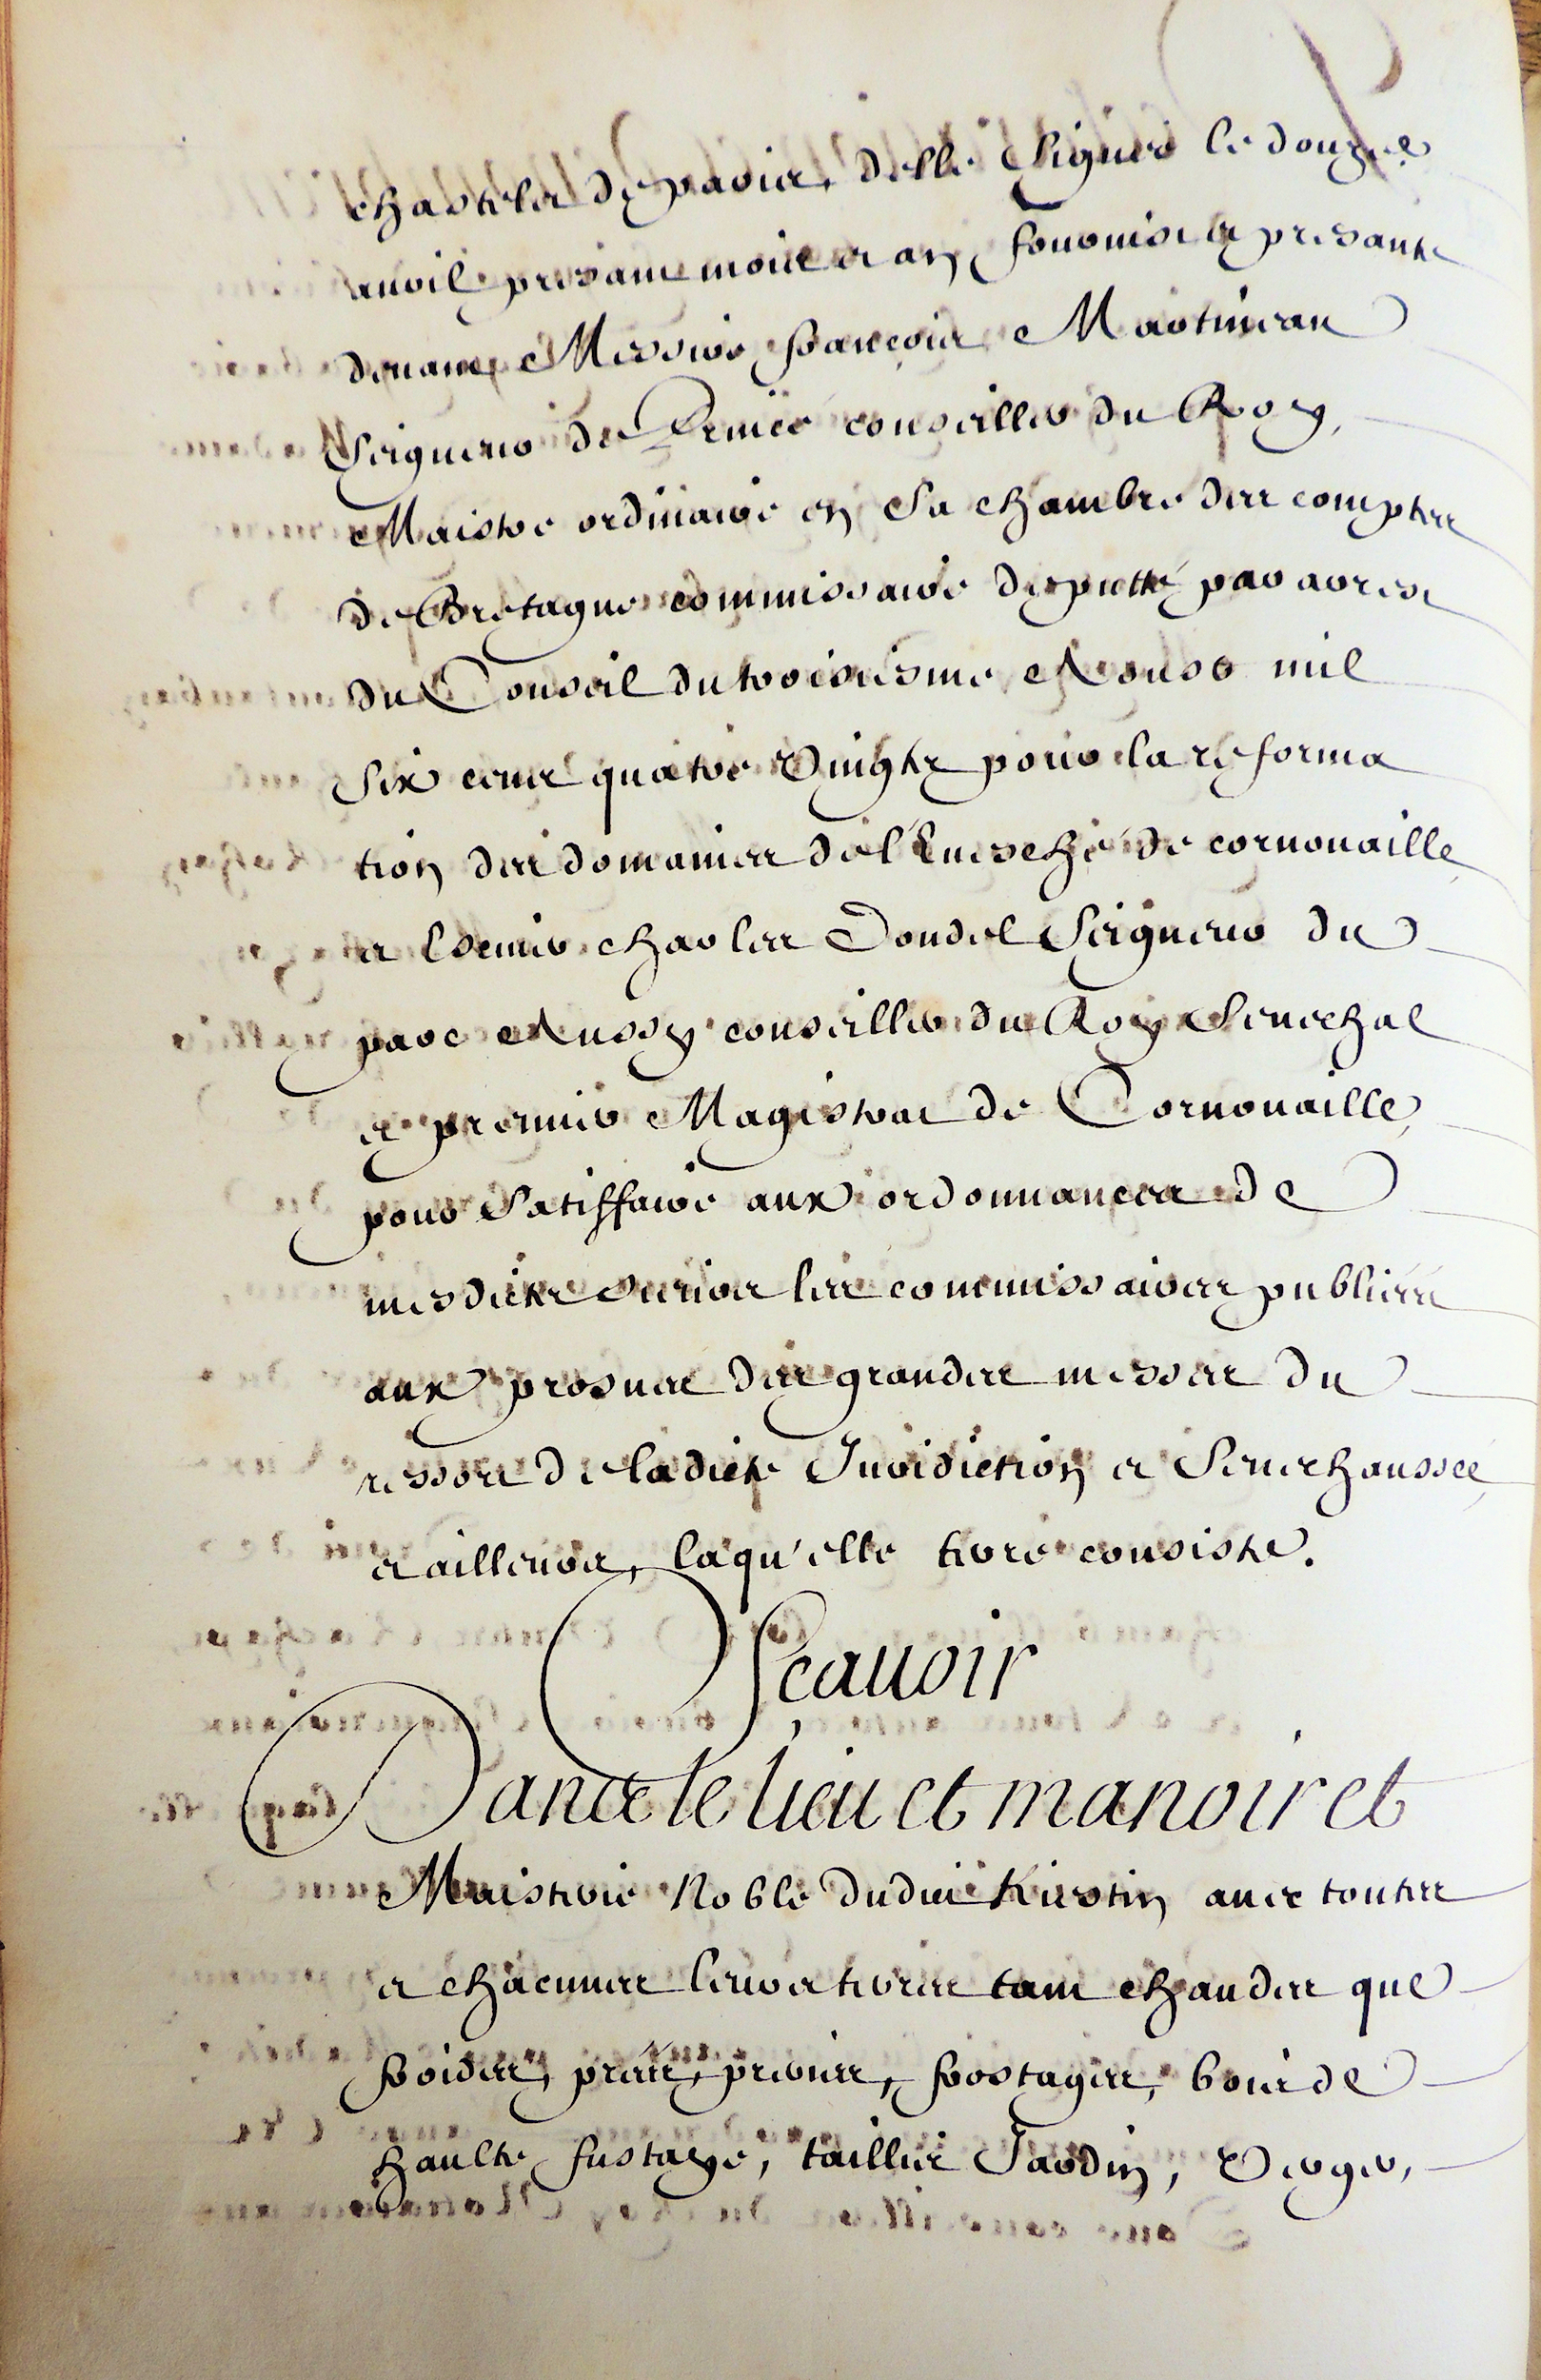 chastelet de paris, d'elle signée le douze
auril presant mois et an fournise et presante
deuant Messire françois Martineau
Seigneur de Princé conseiller du Roy,
Maistre ordinaire en Sa chambre des comptes
de Bretagne commissaire deputté par arest
du Conseil du troisiesme Aoust mil
Six cent quatre Vingts pour la reforma
tion des domaines de l'Euesché de cornouaille
et Escuier charles Doudel Seigneur du
parc Aussy conseiller du Roy Senechal
et premier Magistrat de Cornouaille,
pour Satisffaire aux ordonnances de
mesdicts Sieurs les commissaires publiées
aux prosnes des grandes messes du
ressort de ladicte Juridiction et Senechaussée,
et ailleurs, laqu'elle terre consiste.
Sçauoir
Dans le lieu et manoir et
Maisterie Noble dudict Kirstin auec toutes
et chacunnes leurs terres tant chaudes que
froides, prées, preries, frostages, bois de
haulte fustaye, taillis Jardin, Verger,